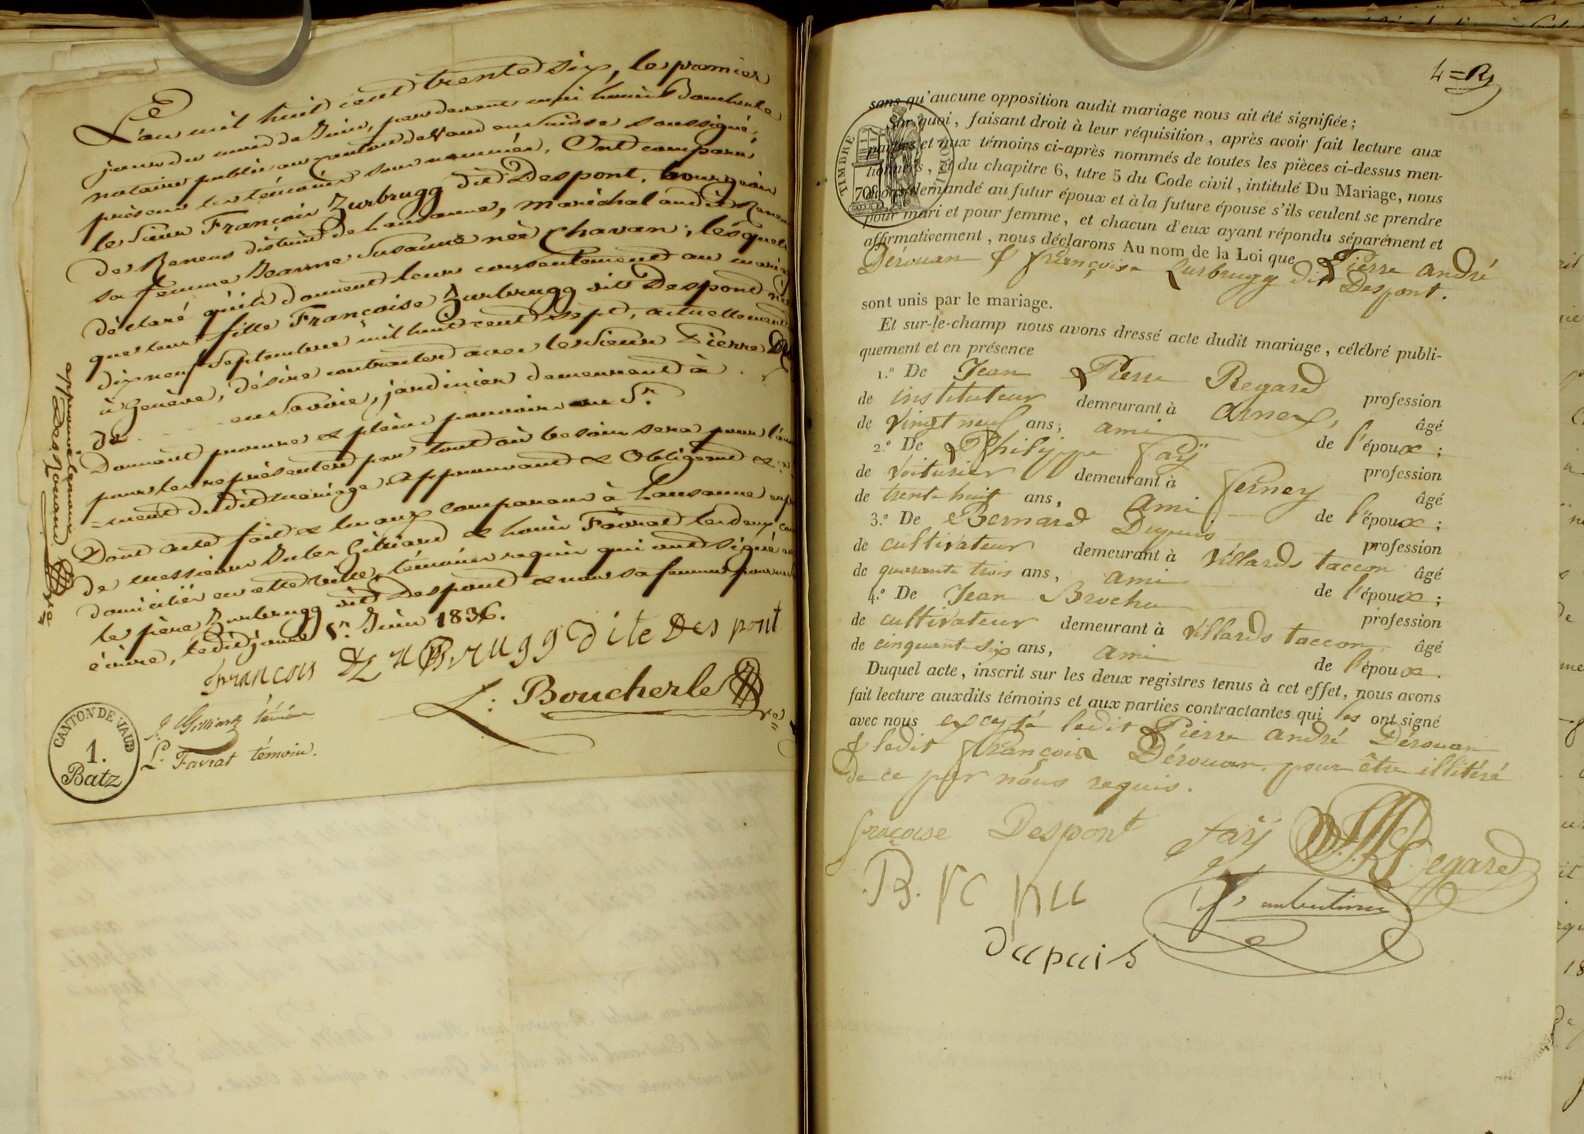 L'an mil huit cent trente six, le premier
jour du mois de Juin, par devant moi Louis Boucherle
notaire public au Canton de Vaud en Suisse soussigné,
présens les témoins sous nommés, Ont comparu
le Sieur François Zurbrugg dit Despont, bourgeois
de Renens district de Lausanne, maréchal audit Renens
sa femme Jeanne Susanne née Chavan; lesquels
déclaré qu'ils donnent leur consentement au mariage
que leur fille Françoise Zurbrugg dit Despont née
dix neuf Septembre mil huit cent sept, actuellement
à Genève, désire contracter avec le Sieur Pierre
de en Savoie, jardinier demeurant à
Donnant pouvoir & plein pouvoir au Sr.
pour les représenter par tout où besoin sera pour
-ment du dit mariage, Approuvant & Obligeant &
Dont acte fait & lu aux comparans à Lausanne
de messieurs Jules Gilliard & Louis Favrat les deux
domiciliés en cette ville, témoins requis qui ont signé
le père Zurbrugg dit Despont & non sa femme pour
écrire, ledit jour 1r. Juin 1836.
françois ZURBRUGG dite Des pont
L: Boucherle
J. Gilliard témoin
L. Favrat témoin.
CANTON DE VAUD
1.
Batz
4=
TIMBRE ROYAL
70c
sans qu'aucune opposition audit mariage nous ait été signifiée;
Sur quoi, faisant droit à leur réquisition, après avoir fait lecture aux
parties et aux témoins ci-après nommés de toutes les pièces ci-dessus men-
tionnées, & du chapitre 6, titre 5 du Code civil, intitulé Du Mariage, nous
avons demandé au futur époux et à la future épouse s'ils veulent se prendre
pour mari et pour femme, et chacun d'eux ayant répondu séparément et
affirmativement, nous déclarons Au nom de la Loi que Pierre André
Dérouan & françoise Zurbrugg dit Despont.
sont unis par le mariage.
Et sur-le-champ nous avons dressé acte dudit mariage, célébré publi-
quement et en présence
1.° De Jean Pierre Regard profession
de instituteur demeurant à Arnex, âgé
de vingt neuf ans, ami de l'époux;
2.° De Philippe Faÿ profession
de voiturier demeurant à Ferney âgé
de trente huit ans, Ami de l'époux;
3.° De Bernard Dupuis profession
de cultivateur demeurant à Villards taccon âgé
de quarante trois ans, ami de l'époux;
4.° De Jean Brochu profession
de cultivateur demeurant à Villards taccon âgé
de cinquante six ans, ami de l'époux.
Duquel acte, inscrit sur les deux registres tenus à cet effet, nous avons
fait lecture auxdits témoins et aux parties contractantes qui les ont signé
avec nous excepté ledit Pierre André Dérouan
& ledit françois Dérouan, pour être illitéré
de ce par nous requis.
françoise Despont Faÿ Regard
Dupuis